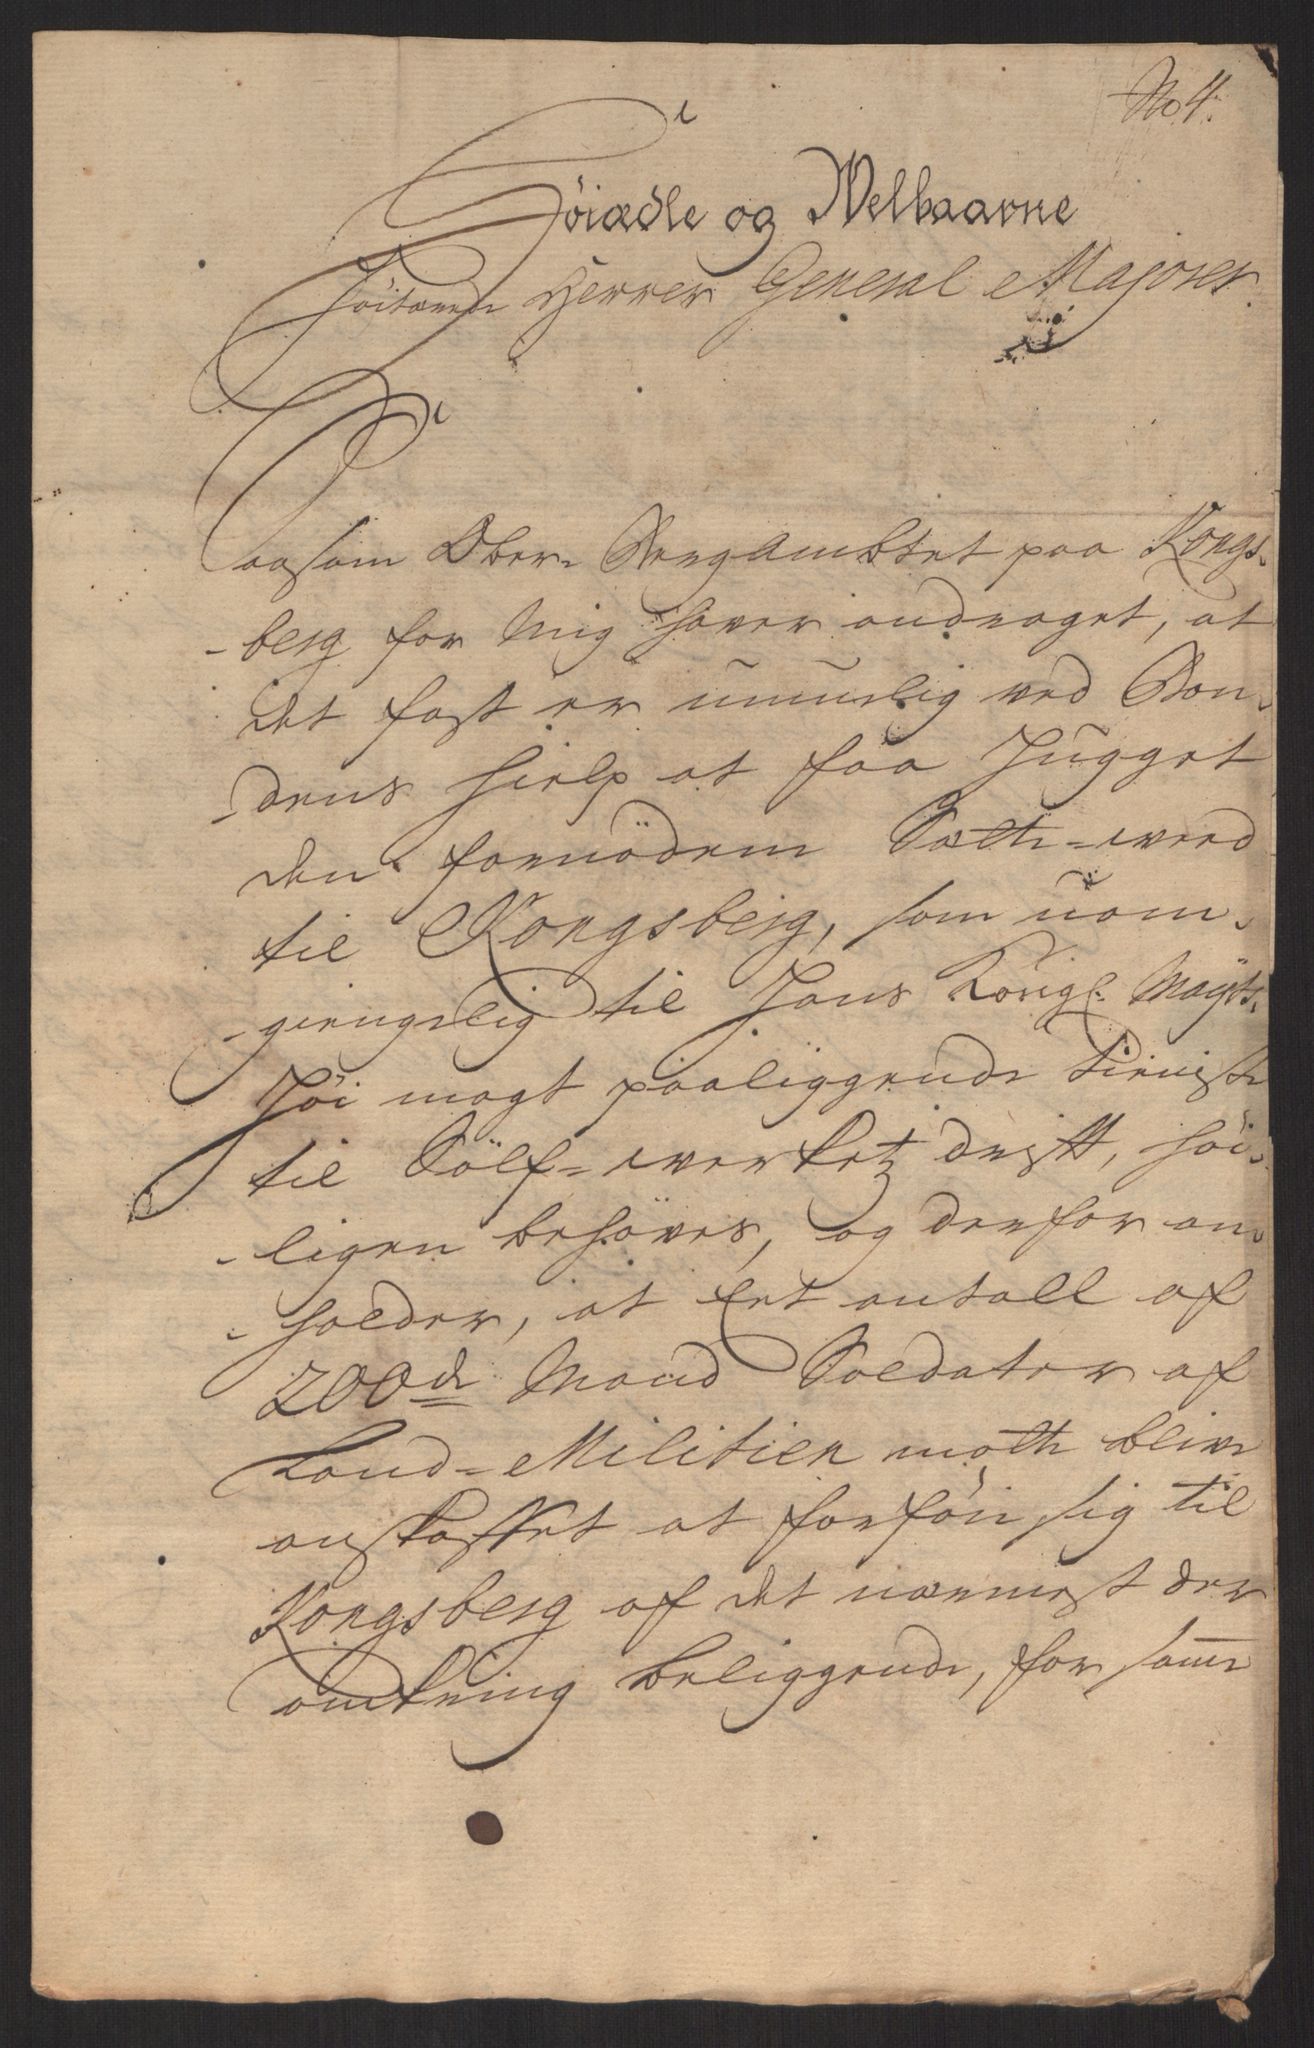 No 4.
Höiædle og Welbaarne
Höitærede Herrer General Majorer
Saasom Ober-Bergambtet paa Kongs-
-berg for mig haver andraget, at
det fast er umuelig ved Bon-
-dens hielp at faa hugget
den fornödene Sætte-weed
til Kongsberg, som uom-
-giengelig til Hans Kongl: Mayts
Höi magt paaliggende tieniste
til Sölf-werketz drifft, höi-
-ligen behöves, og derfor an-
-holder, at Eet antall af
200de Mand Soldater af
Land-Militien motte blive
anskaffet at forföie sig til
Kongsberg af det nærmest der
omkring beliggende, for samme